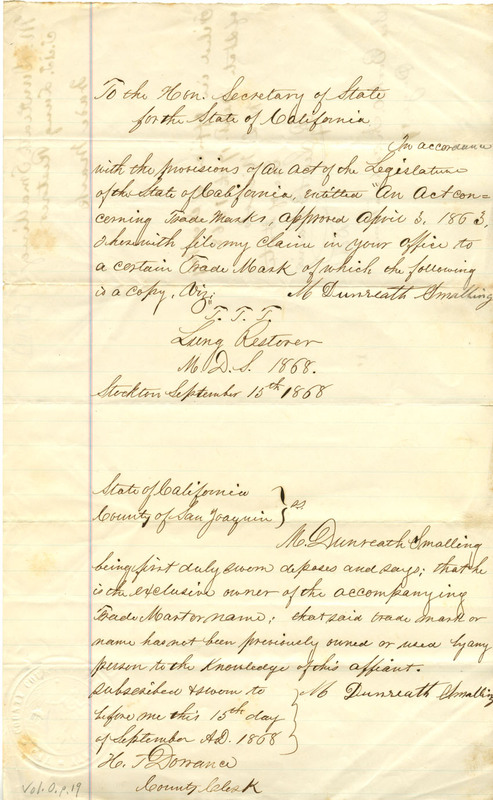 To the Hon. Secretary of State
for the State of California
In accordance
with the provisions of an act of the Legislature
of the State of California, entitled "An Act con-
cerning Trade Marks, approved April 3, 1863,
I herewith file my claim in your office to
a certain Trade Mark of which the following
is a copy, Viz: M Dunreath Smalling
T. T. T.
Lung Restorer
M. D. S. 1868.
Stockton September 15th 1868
State of California
County of San Joaquin } ss
M. Dunreath Smalling
being first duly sworn deposes and says; that he
is the exclusive owner of the accompanying
Trade Mark or name; that said trade mark or
name has not been previously owned or used by any
person to the knowledge of this affiant.
Subscribed & sworn to } M Dunreath Smalling
before me this 15th day
of September A.D. 1868
H. T. Dorrance
County Clerk
Vol. 0, p. 19